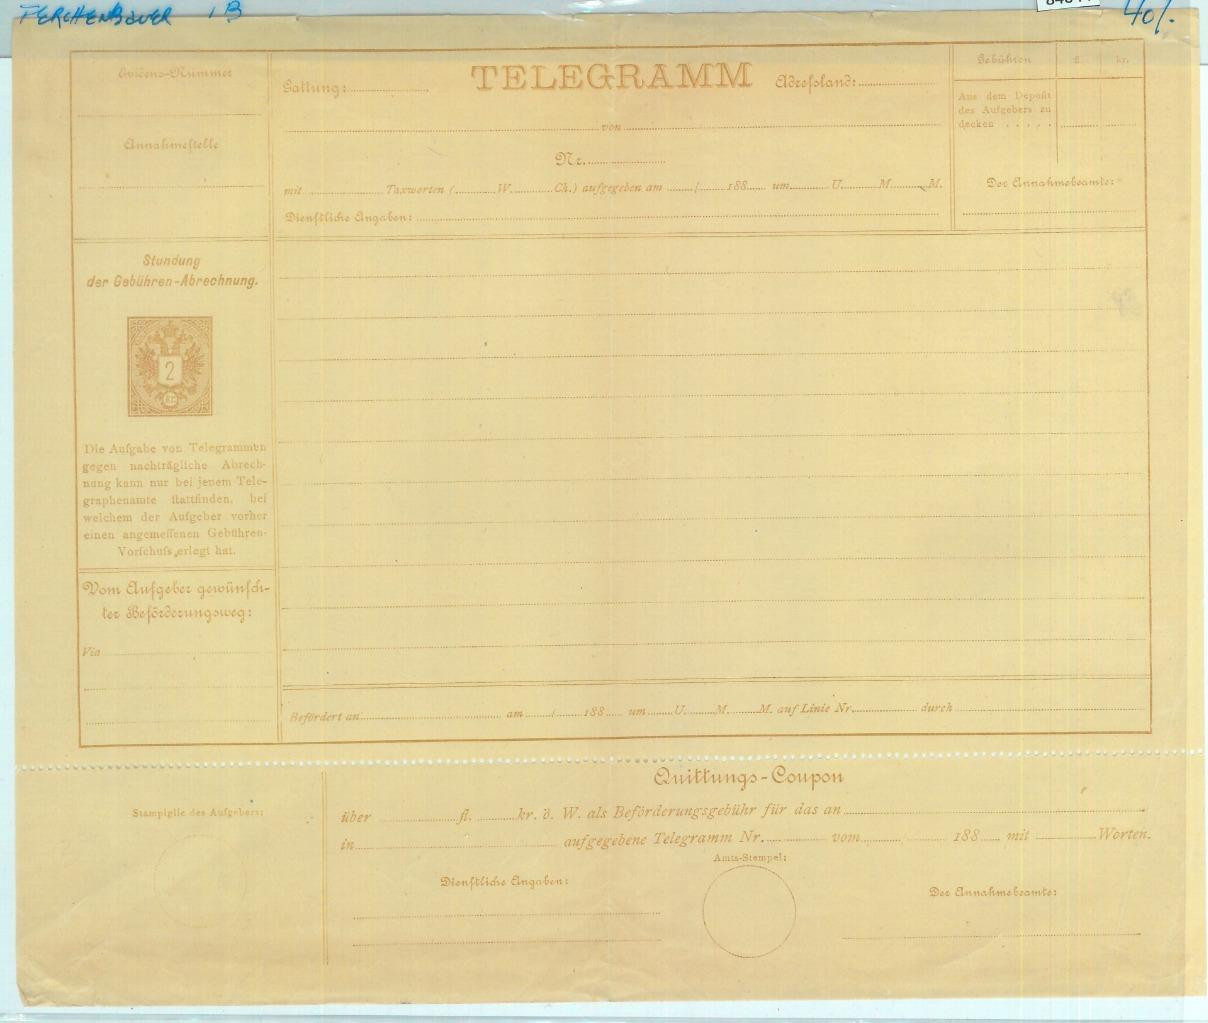 FERCHENBAUER 1B
40/-
Evidenz-Nummer
Annahmeſtelle
Gattung:
TELEGRAMM
Adreſsland:
von
Nr.
mit Taxworten ( W. Ch.) aufgegeben am / 188 um U. M. M.
Dienſtliche Angaben:
Gebühren fl. kr.
Aus dem Depoſit
des Aufgebers zu
decken . . . . .
Der Annahmebeamte:
Stundung
der Gebühren-Abrechnung.
2
KR
Die Aufgabe von Telegrammen
gegen nachträgliche Abrech-
nung kann nur bei jenem Tele-
graphenamte ſtattfinden, bei
welchem der Aufgeber vorher
einen angemeſſenen Gebühren-
Vorſchuſs erlegt hat.
Vom Aufgeber gewünſch-
ter Beförderungsweg:
Via
Befördert an am / 188 um U. M. M. auf Linie Nr. durch
Quittungs-Coupon
Stampiglie des Aufgebers:
über fl. kr. ö. W. als Beförderungsgebühr für das an
in aufgegebene Telegramm Nr. vom 188 mit Worten.
Amts-Stempel:
Dienſtliche Angaben:
Der Annahmebeamte: